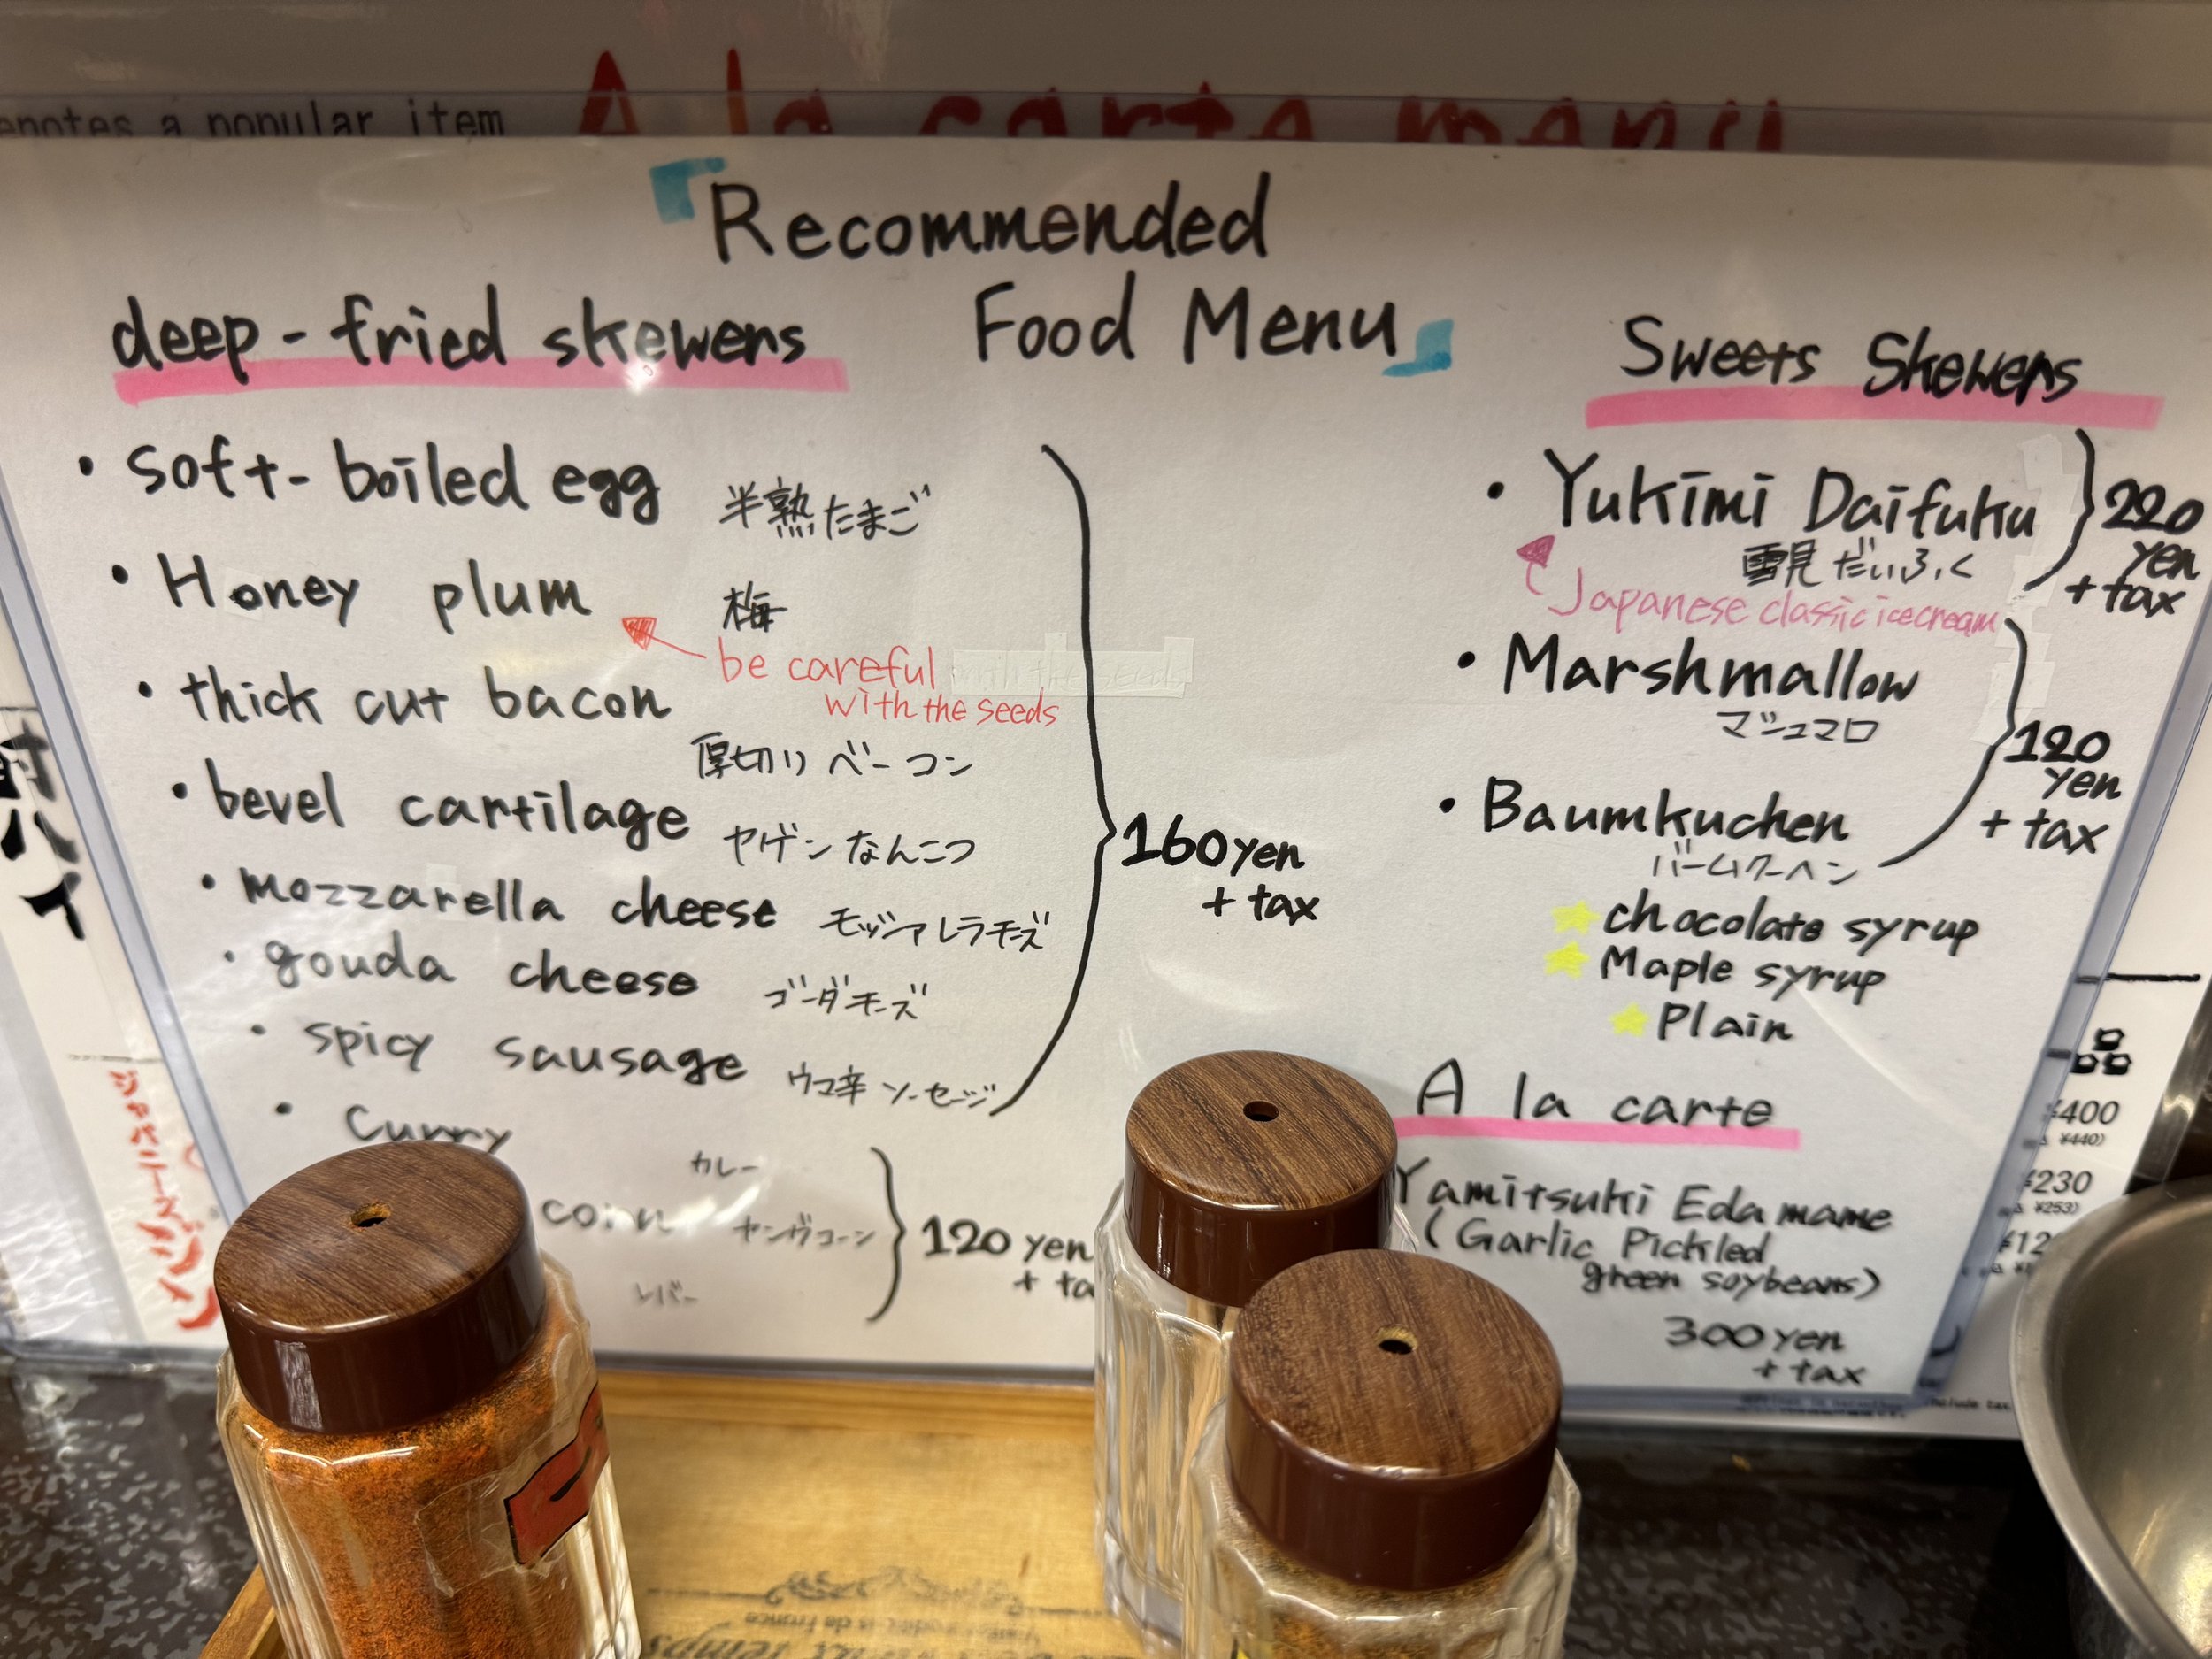 a popular item
A la carte menu
「Recommended
Food Menu」
deep-fried skewers
・soft-boiled egg 半熟たまご
・Honey plum 梅
be careful
with the seeds
・thick cut bacon
厚切り ベーコン
・bevel cartilage ヤゲン なんこつ
・mozzarella cheese モッツァレラチーズ
・gouda cheese ゴーダチーズ
・spicy sausage ウマ辛 ソーセージ
160yen
+ tax
・curry カレー
corn ヤングコーン
レバー
120 yen
+ ta
Sweets Skewers
・Yukimi Daifuku
雪見だいふく
Japanese classic icecream
220
yen
+ tax
・Marshmallow
マシュマロ
・Baumkuchen
バームクーヘン
120
yen
+ tax
★chocolate syrup
★Maple syrup
★Plain
A la carte
Yamitsuki Edamame
(Garlic Pickled
green soybeans)
300yen
+ tax
ハイ
ジャパニーズジン
品
¥400
¥440)
¥230
¥253)